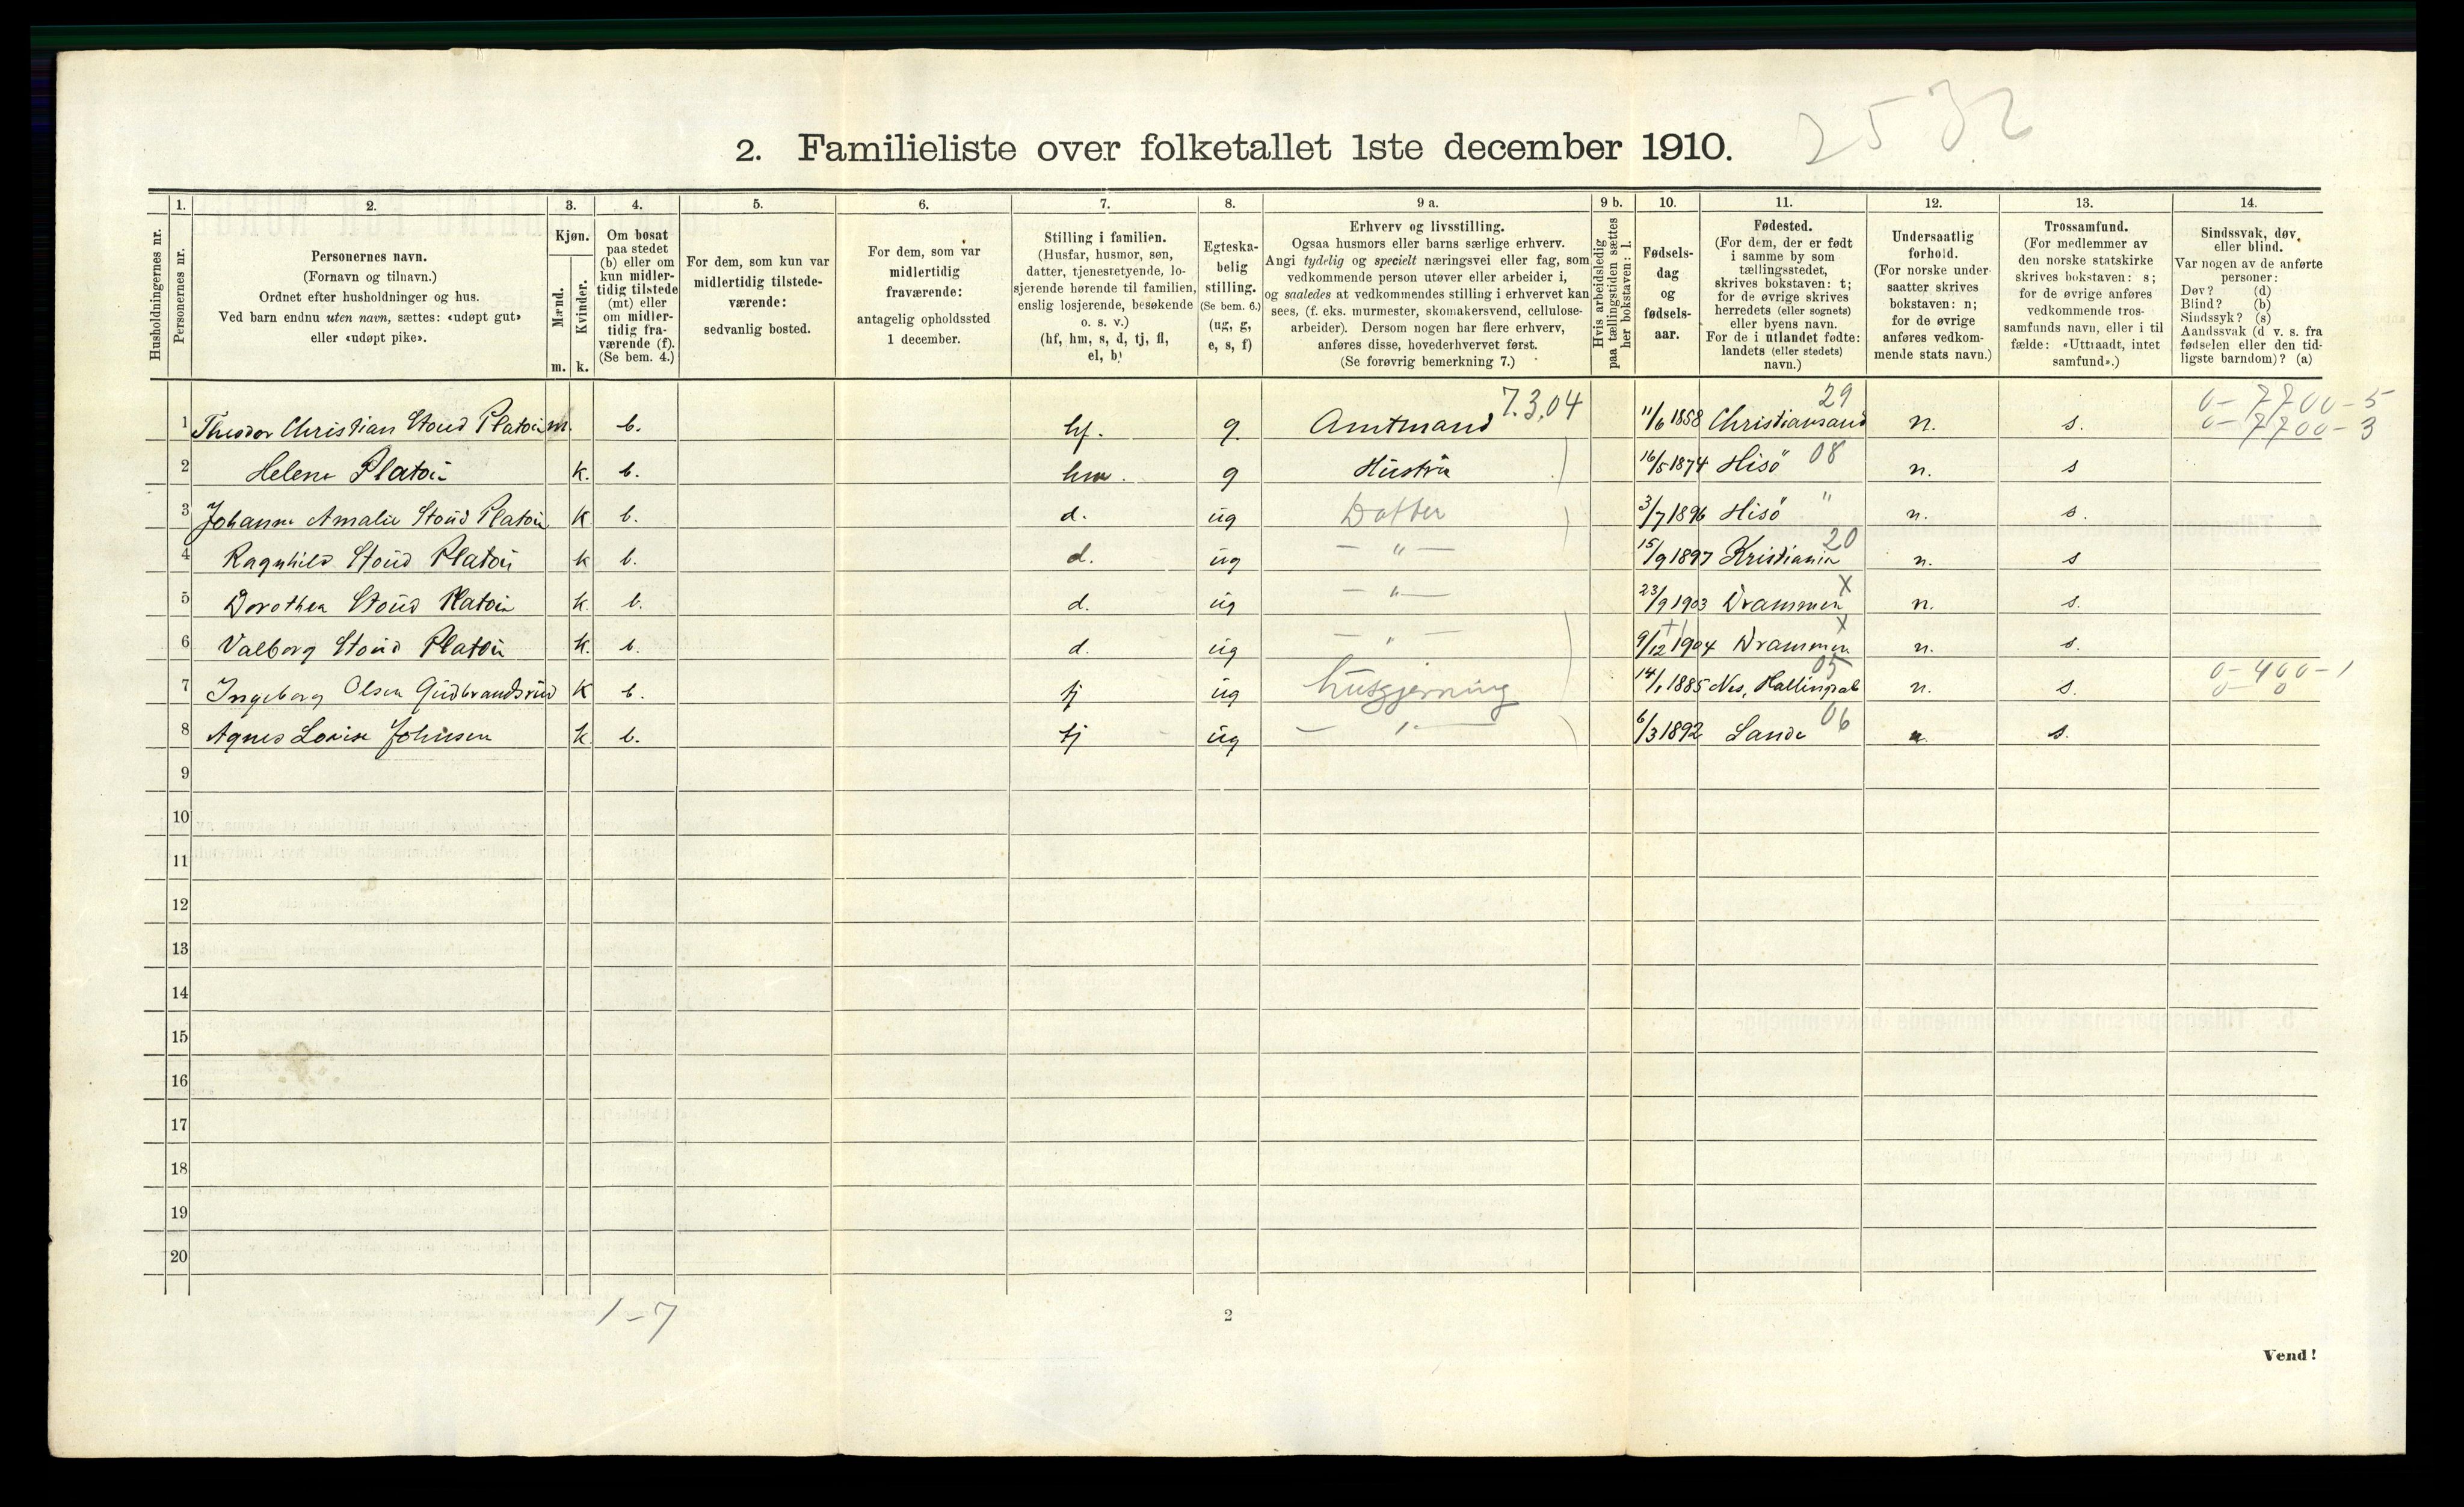 2532
2. Familieliste over folketallet 1ste december 1910.
Husholdningernes nr.
1. Personernes nr.
2. Personernes navn.
(Fornavn og tilnavn.)
Ordnet efter husholdninger og hus.
Ved barn endnu uten navn, sættes: «udøpt gut»
eller «udøpt pike».
3. Kjøn.
Mænd. m.
Kvinder. k.
4. Om bosat
paa stedet
(b) eller om
kun midler-
tidig tilstede
(mt) eller
om midler-
tidig fra-
værende (f).
(Se bem. 4.)
5. For dem, som kun var
midlertidig tilstede-
værende:
sedvanlig bosted.
6. For dem, som var
midlertidig
fraværende:
antagelig opholdssted
1 december.
7. Stilling i familien.
(Husfar, husmor, søn,
datter, tjenestetyende, lo-
sjerende hørende til familien,
enslig losjerende, besøkende
o. s. v.)
(hf, hm, s, d, tj, fl,
el, b)
8. Egteska-
belig
stilling.
(Se bem. 6.)
(ug, g,
e, s, f)
9 a. Erhverv og livsstilling.
Ogsaa husmors eller barns særlige erhverv.
Angi tydelig og specielt næringsvei eller fag, som
vedkommende person utøver eller arbeider i,
og saaledes at vedkommendes stilling i erhvervet kan
sees, (f. eks. murmester, skomakersvend, cellulose-
arbeider). Dersom nogen har flere erhverv,
anføres disse, hovederhvervet først.
(Se forøvrig bemerkning 7.)
9 b. Hvis arbeidsledig
paa tællingstiden sættes
her bokstaven: l.
10. Fødsels-
dag
og
fødsels-
aar.
11. Fødested.
(For dem, der er født
i samme by som
tællingsstedet,
skrives bokstaven: t;
for de øvrige skrives
herredets (eller sognets)
eller byens navn.
For de i utlandet fødte:
landets (eller stedets)
navn.)
12. Undersaatlig
forhold.
(For norske under-
saatter skrives
bokstaven: n;
for de øvrige
anføres vedkom-
mende stats navn.)
13. Trossamfund.
(For medlemmer av
den norske statskirke
skrives bokstaven: s;
for de øvrige anføres
vedkommende tros-
samfunds navn, eller i til
fælde: «Uttraadt, intet
samfund».)
14. Sindssvak, døv
eller blind.
Var nogen av de anførte
personer:
Døv? (d)
Blind? (b)
Sindssyk? (s)
Aandssvak (d v. s. fra
fødselen eller den tid-
ligste barndom)? (a)
7.3.04 29 0-7700-5
1 Theodor Christian Stoud Platou m. b. hf. g. Amtmand 11/6 1858 Christiansand n. s. 0-7700-3
2 Helene Platou k. b. hm. g Hustru 16/5 1874 Hisö 08 n. s
3 Johanne Amalie Stoud Platou k b. d. ug Datter 3/7 1896 Hisö " n. s.
4 Ragnhild Stoud Platou k b. d. ug — " — 15/9 1897 Kristiania 20 n. s
5 Dorothea Stoud Platou k. b. d. ug — " — 23/9 1903 Drammen X n. s.
6 Valborg Stoud Platou k. b. d. ug — " — 9/12 1904 Drammen X n. s.
7 Ingeborg Olsen Gudbrandsrud k b. tj ug husgjerning 14/1 1885 Nes, Hallingdal 05 n. s. 0-400-1
0- 0
8 Agnes Lovise Johnsen k. b. tj ug — " — 6/3 1892 Sande 06 n. s.
9
10
11
12
13
14
15
16
17
18
19
20
1-7
2
Vend!